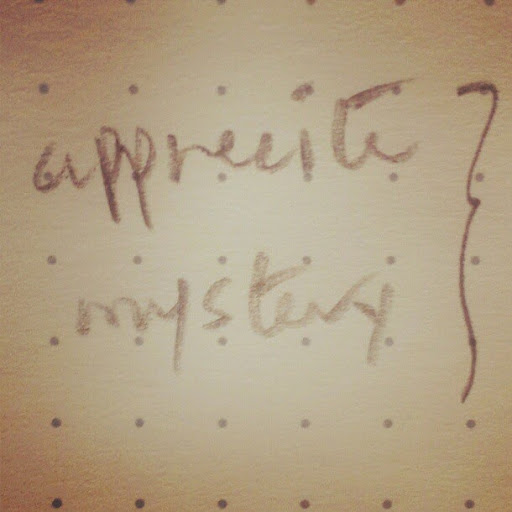 apprecite
mystery